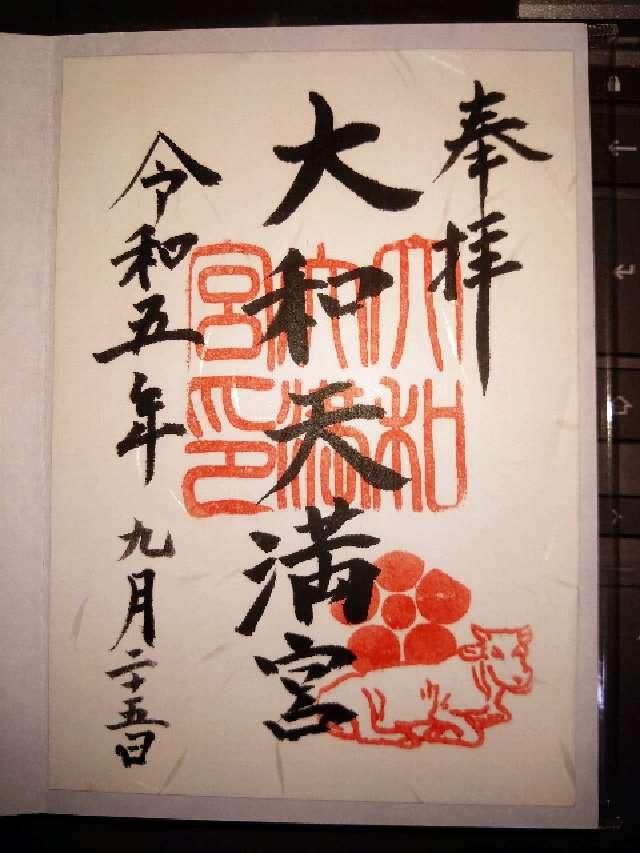 奉拝
大和天満宮
大和天満宮印
令和五年九月二十五日